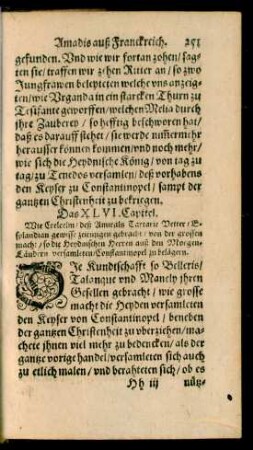 Amadis auß Franckreich. 251
gefunden. Und wie wir fortan zohen/ sag-
ten sie/ traffen wir zehen Ritter an/ so zwo
Jungfrawen beleyteten welche vns anzeig-
ten/ wie Vrganda in ein starcken Thurn zu
Tesifante geworffen/ welchen Melia durch
jhre Zauberey/ so hefftig beschworen hat/
daß es darauff stehet/ sie werde nimmermehr
herausser können kommen/ vnd noch mehr/
wie sich die Heydnische König/ von tag zu
tag/ zu Tenedos versamlen/ deß vorhabens
den Keyser zu Constantinopel/ sampt der
gantzen Christenheit zu bekriegen.
Das XLVI. Capitel.
Wie Ercleritn/ deß Amirals Tartarie Vetter/
gewisse zeitungen gebracht/ von der grossen
macht/ so die Heydnischen Herren auß den Morgen-
Ländern versamleten/ Constantinopel zu belägern.
Die Kundtschafft so Belleris/
Talanque vnd Manely jhren
Gesellen gebracht/ wie grosse
macht die Heyden versamleten
den Keyser von Constantinopel/ beneben
der gantzen Christenheit zu vberziehen/ ma-
chete jhnen viel mehr zu bedencken/ als der
gantze vorige handel/ versamleten sich auch
zu etlich malen/ vnd berahteten sich/ ob es
Hh iij nütz-